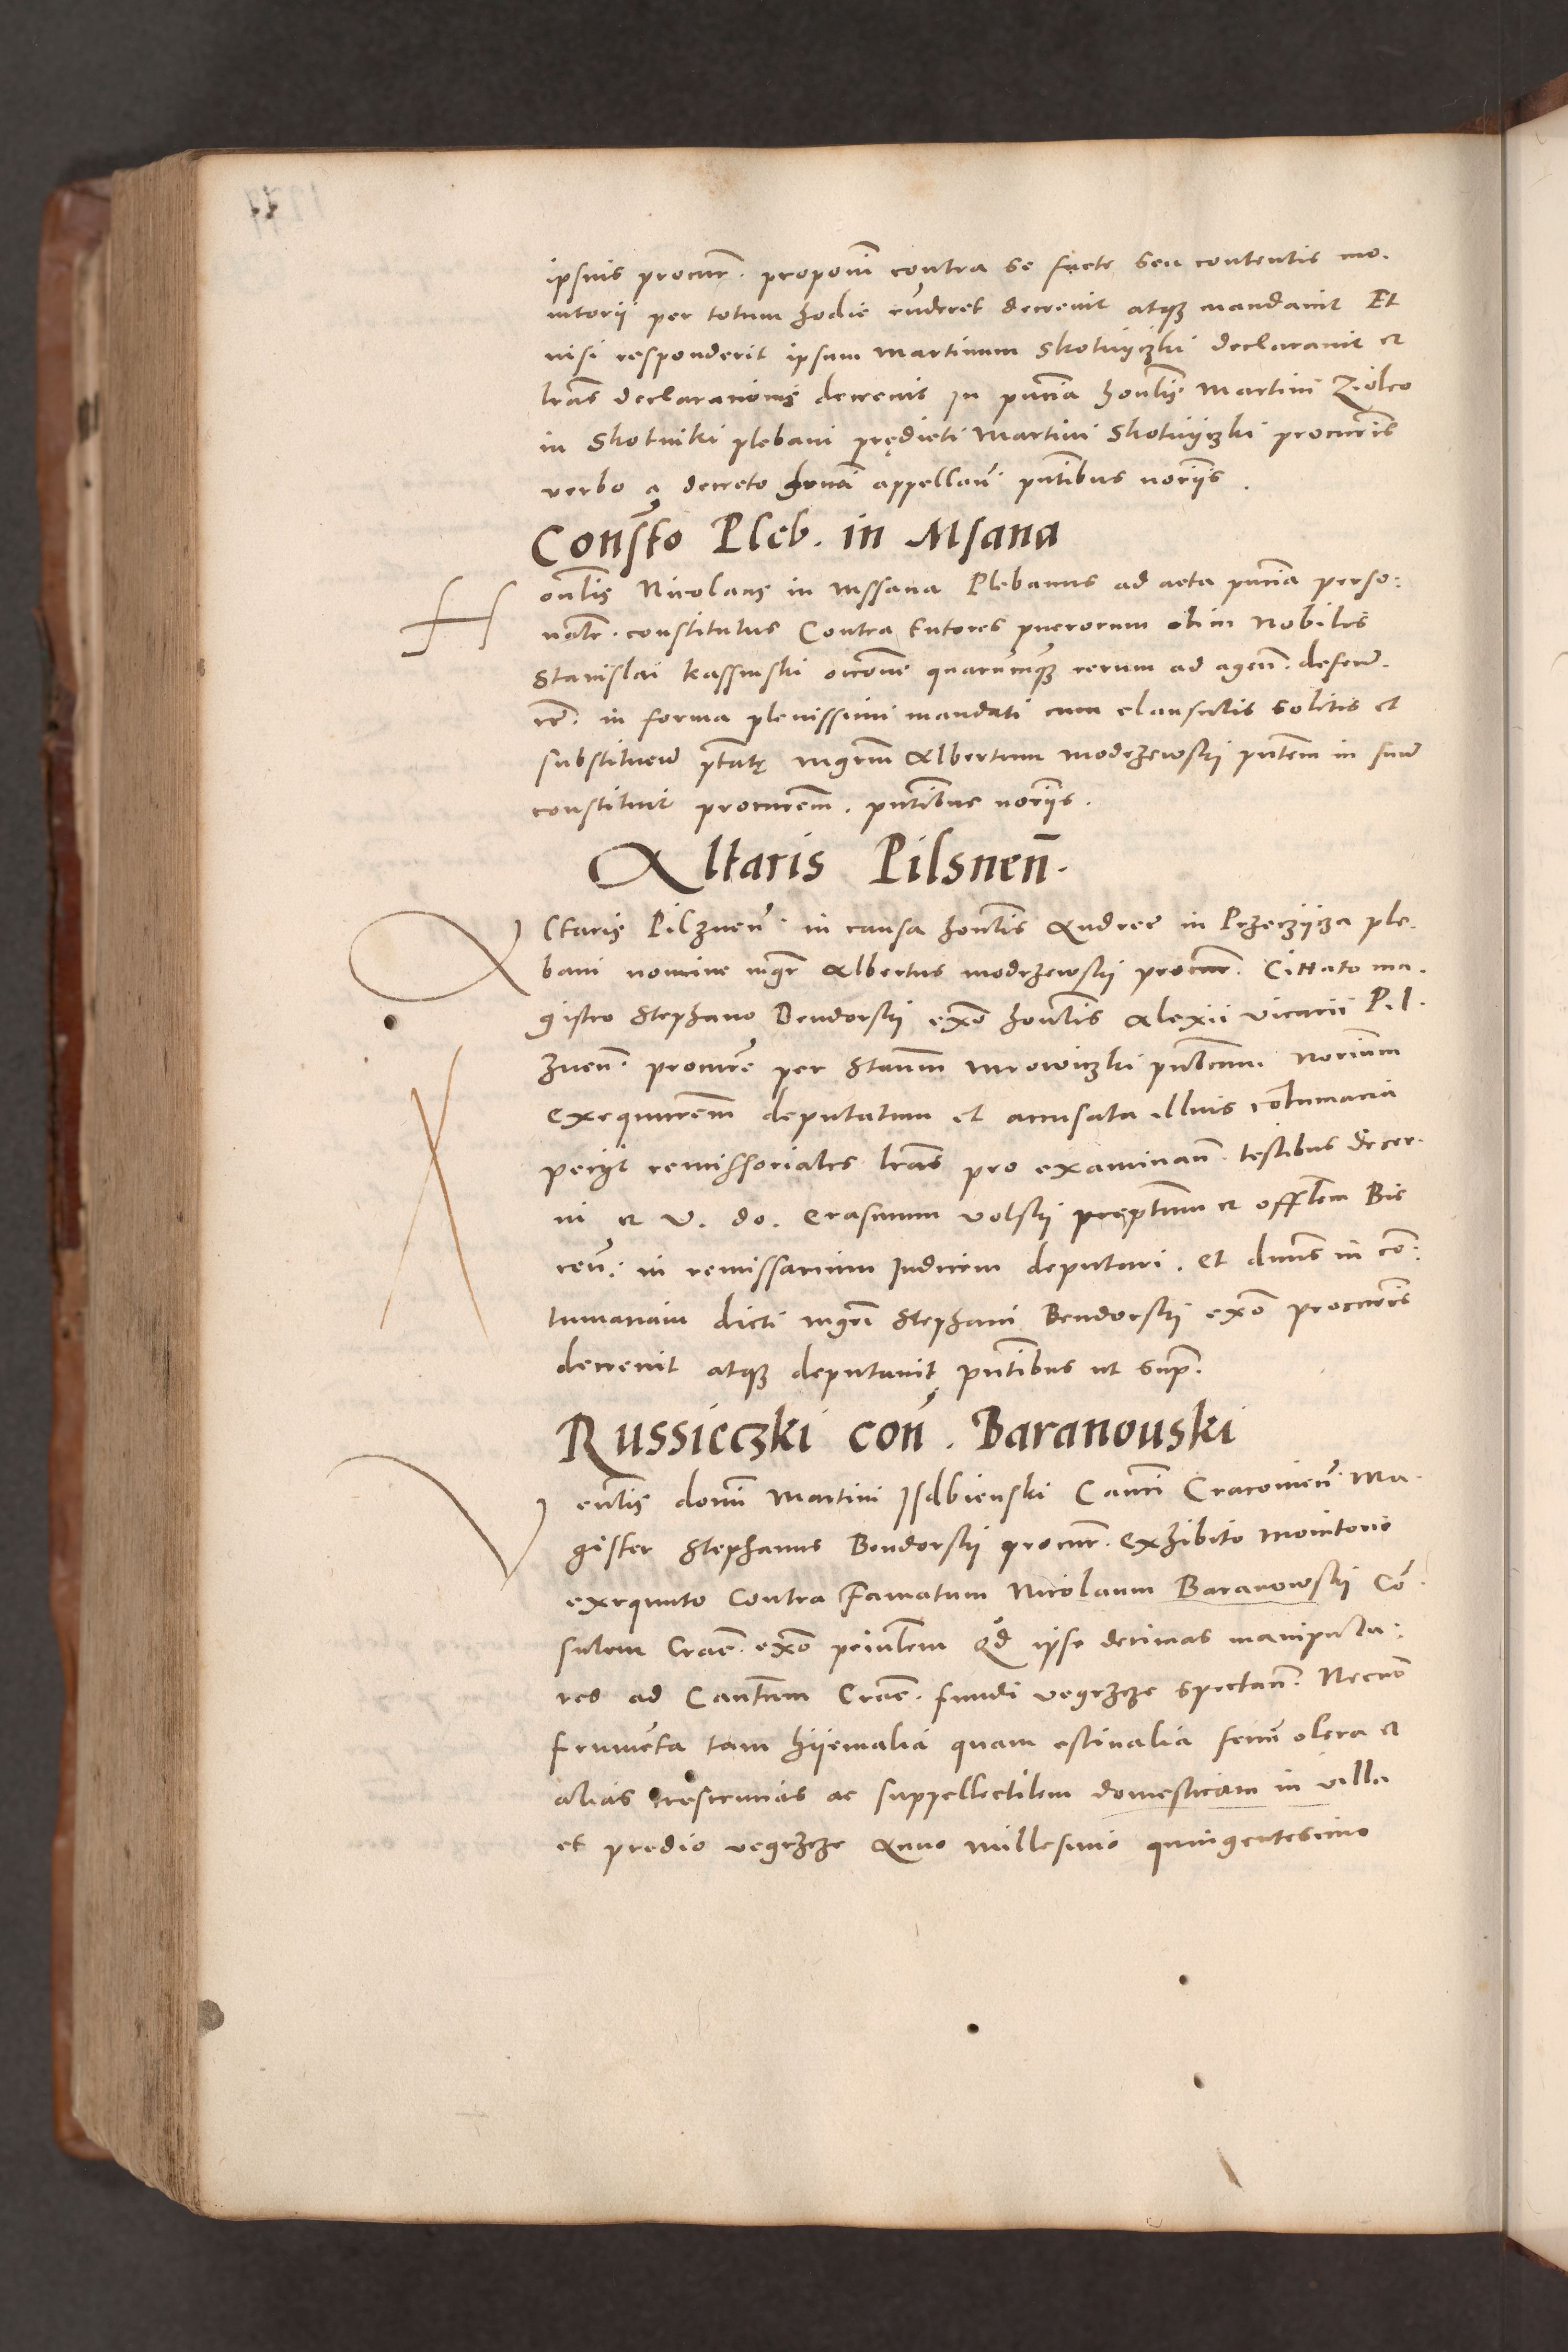 ipsius procur̄. proponi contra se facte seu contentis mo.
nitorii per totum hodie rūderet decrevit atqꝫ mandavit Et
nisi responderit ipsum Martinum Skotnyczki declaravit et
lrās declarationis decrevit In pn̄tia honīlis Martini Ziolco
in Skotniki plebani prędicti Martini Skotnyczki procur̄is
verbo a decreto appellan̄ pn̄tibus nori̅is.
Constō Pleb. in Msana
Honīlis Nicolaus in mssana Plebanus ad acta pn̄tia perso:
nalr̄. constitutus Contra tutores puerorum olim Nobilis
Stanislai Kassinski occ̄one quarumcunqꝫ rerum ad agen̄. defen̄.
rē. in forma plenissimi mandati cum clausulis solitis et
substituen̄ ptātę mgrm̄ Albertum modrzewskij pn̄tem in suū
constituit procurem̄. pn̄tibus nori̅is.
Altaris Pilsnen̄.
Altaris Pilznen̄. in causa honīlis Andree in Przeczycza ple.
bani nomine mgr̄ Albertus modrzewskij procur̄. Cittato ma.
gistro Stephano Bendorskij exō honīlis Alexii vicarii Pil.
znen̄. procurē per Stanm̄ mrowiczki publicum norium̄
exequutorem̄ deputatum et accusata illius cōtumacia
peciit remissoriales lrās pro examinan̄. testibus decer.
ni et v. do. Erasmum volskij pręptum̄ et offlem̄ Bie
cen̄. in remissarium Iudicem deputari. et dnus̄ in cō:
tumaciam dicti mgrī Stephani Bendorskij exō procuris̄
decrevit atqꝫ deputavit pn̄tibus ut supr.
Russieczki con̄. Baranouski
Venīlis domi̅ Martini Isdbienski Canci̅ Cracovien̄. Ma.
gister Stephanus Bendorskij procur̄. exhibito monitorio
exequuto Contra Famatum Nicolaum Baranowskij Cō.
sulem Crac̄. exō principalem Qd̄ ipse decimas manipula:
res ad Cantum̄ Crac̄. fundi vegrzcze spectan̄. Necnō
frumēta tam hyemalia quam estivalia fenū olera et
alias ac suppellectilem domesticam in villa
et predio vegrzcze Anno Millesimo quingentesimo